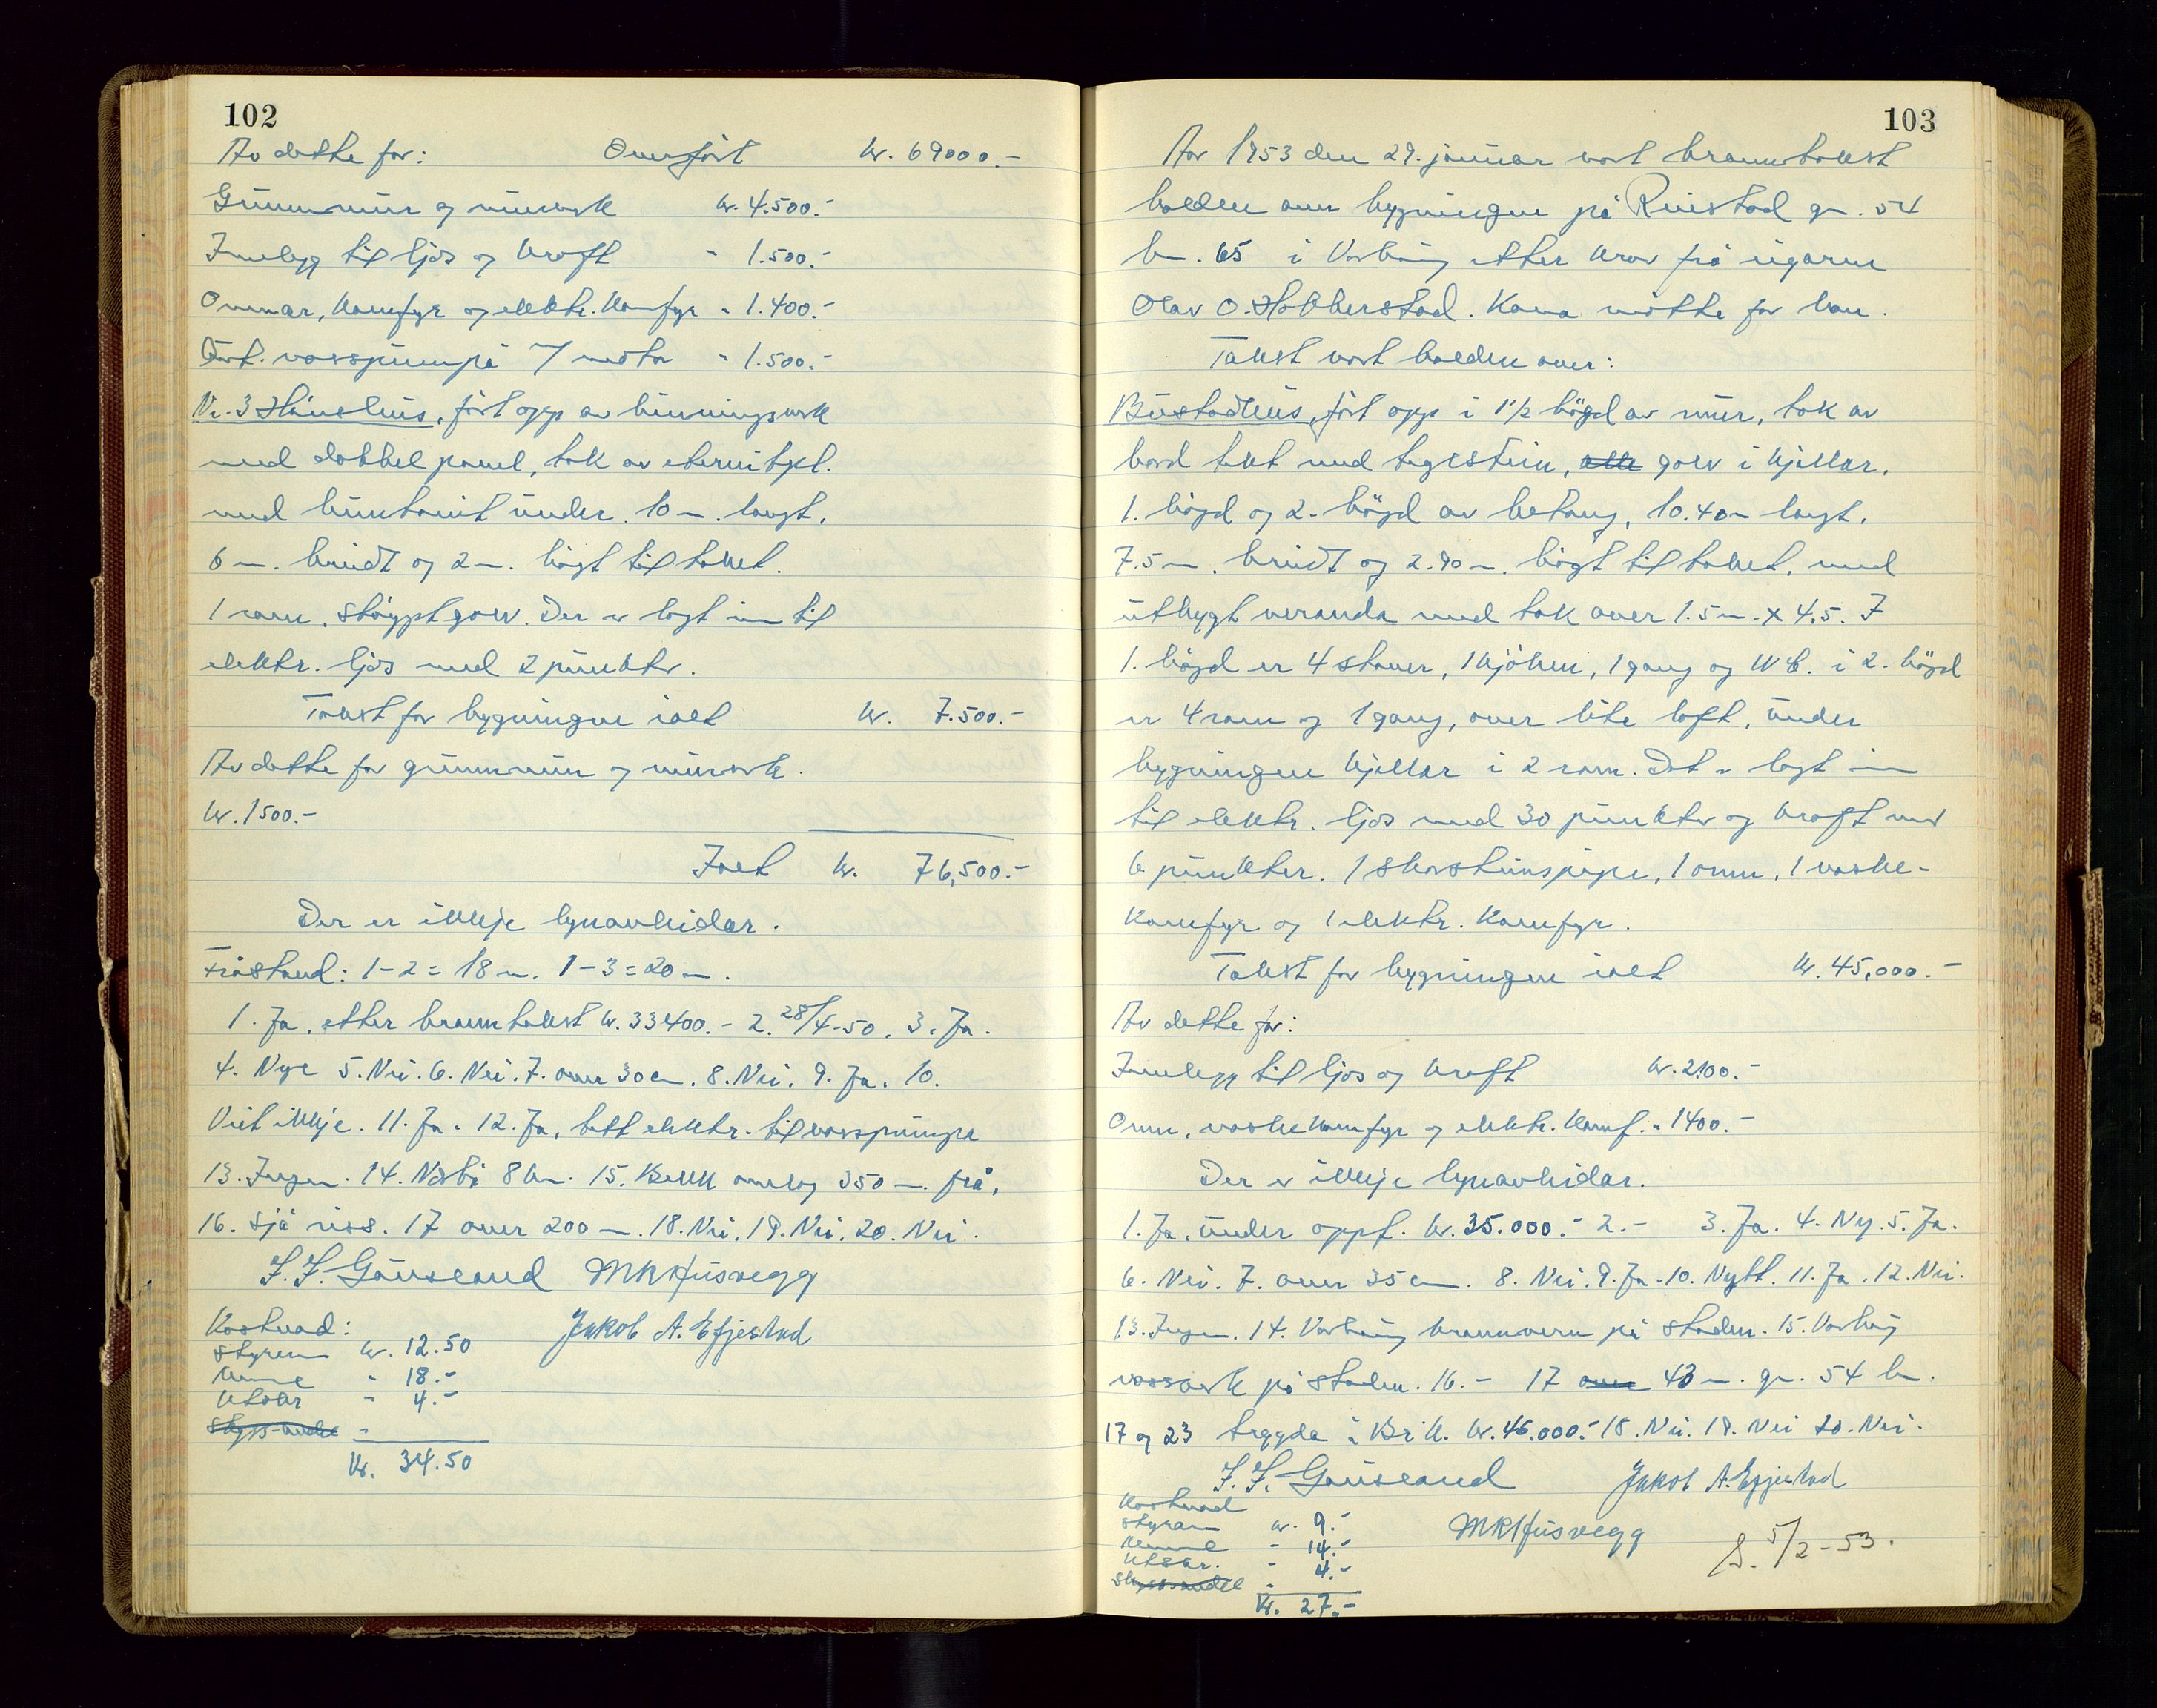 102
Av dette for: Overført kr. 69000.-
Grunnmur og murverk kr. 4.500.-
Innlegg til ljos og kraft " 1.500.-
Omnar, komfyr og elektr. komfyr " 1.400.-
vasspumpe m/ motor " 1.500.-
Nr. 3 Hönsehus, fört opp av bindingsverk
med dobbel panel, tak av eternitpl.
med huntonit under. 10 m. langt,
6 m. breidt og 2 m. högt til taket.
1 rom, stöypt golv. Der er lagt inn til
elektr. ljos med 2 punkter.
Takst for bygningen ialt kr. 7.500.-
Av dette for grunnmur og murverk.
kr. 1500.-
Ialt kr. 76,500.-
Der er ikkje lynavleidar.
Fråstand: 1-2 = 18 m. 1-3 = 20 m.
1. Ja, etter branntakst kr. 33400.- 2. 28/4-50. 3. Ja.
4. Nye 5. Nei. 6. Nei. 7. over 30 cm. 8. Nei. 9. Ja. 10.
Veit ikkje. 11. Ja. 12. Ja, tett elektr. til vasspumpe
13. Ingen. 14. Nærbö 8 km. 15. Bekk omlag 350 m. frå,
16. Sjå riss. 17 over 200 m. 18. Nei. 19. Nei. 20. Nei.
J. J. Gausland MKHusvegg
Jakob A. Efjestad
Kostnad:
Styren kr. 12.50
Menn " 18.-
Utskr " 4.-
Skyss-andel "
Kr. 34.50
103
År 1953 den 29. januar vart branntakst
halden over bygningen på Reistad gn. 54
bn. 65 i Varhaug etter krav frå eigaren
Olav O. Hobberstad. Kona møtte for han.
Takst vart halden over:
Bustadhus, fört opp i 1 1/2 högd av mur, tak av
bord tekt med teglstein, alle golv i kjellar,
1. högd og 2. högd av betong, 10.40 m langt,
7.5 m. breidt og 2.90 m. högt til taket, med
utbygt veranda med tak over 1.5 m. x 4.5. I
1. högd er 4 stover, 1 kjöken, 1 gang og WC. i 2. högd
er 4 rom og 1 gang, over lite loft, under
bygningen kjellar i 2 rom. Det er lagt inn
til elektr. ljos med 30 punkter og kraft med
6 punkter. 1 skorsteinspipe, 1 omn, 1 vaske-
komfyr og 1 elektr. komfyr.
Takst for bygningen ialt kr. 45,000.-
Av dette for:
Innlegg til ljos og kraft kr. 2100.-
Omn, vaskekomfyr og elektr. komf. " 1400.-
Der er ikkje lynavleidar.
1. Ja, under oppf. kr. 35.000.- 2.- 3. Ja. 4. Ny. 5. Ja.
6. Nei. 7. over 35 cm. 8. Nei. 9. Ja. 10. Nytt. 11. Ja. 12. Nei.
13. Ingen. 14. Varhaug brannvern på staden. 15. Varhaug
vassverk på staden. 16.- 17 over 43 m. gn. 54 bn.
17 og 23 trygda i Br.k. kr. 46.000.- 18. Nei. 19. Nei 20. Nei.
J. J. Gausland Jakob A. Efjestad
Kostnad
Styraren kr. 9.-
Menn " 14.-
Utskr. " 4.-
Skyss-andel "
Kr. 27.-
MKHusvegg
S. 5/2-53.